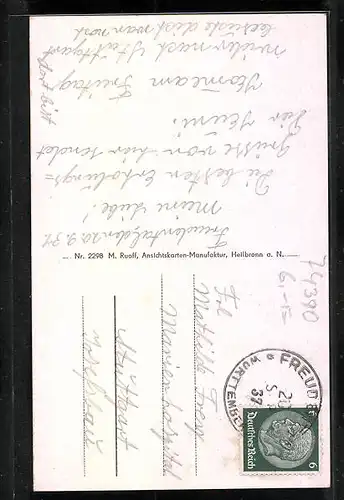 Freudental, den 20.9.37
Meine Liebe!
Die besten Erholungs=
grüße von hier sendet
Dir Heini.
Komme am Freitag
wieder nach Stuttgart
besuche dich wann
dort bist
Nr. 2298 M. Ruoff, Ansichtskarten-Manufaktur, Heilbronn a. N.
74390
6,-
Frl
Mathilde
Marienhospital
Stuttgart
FREUD
WÜRTTEMBE
20
37
Deutsches Reich
6